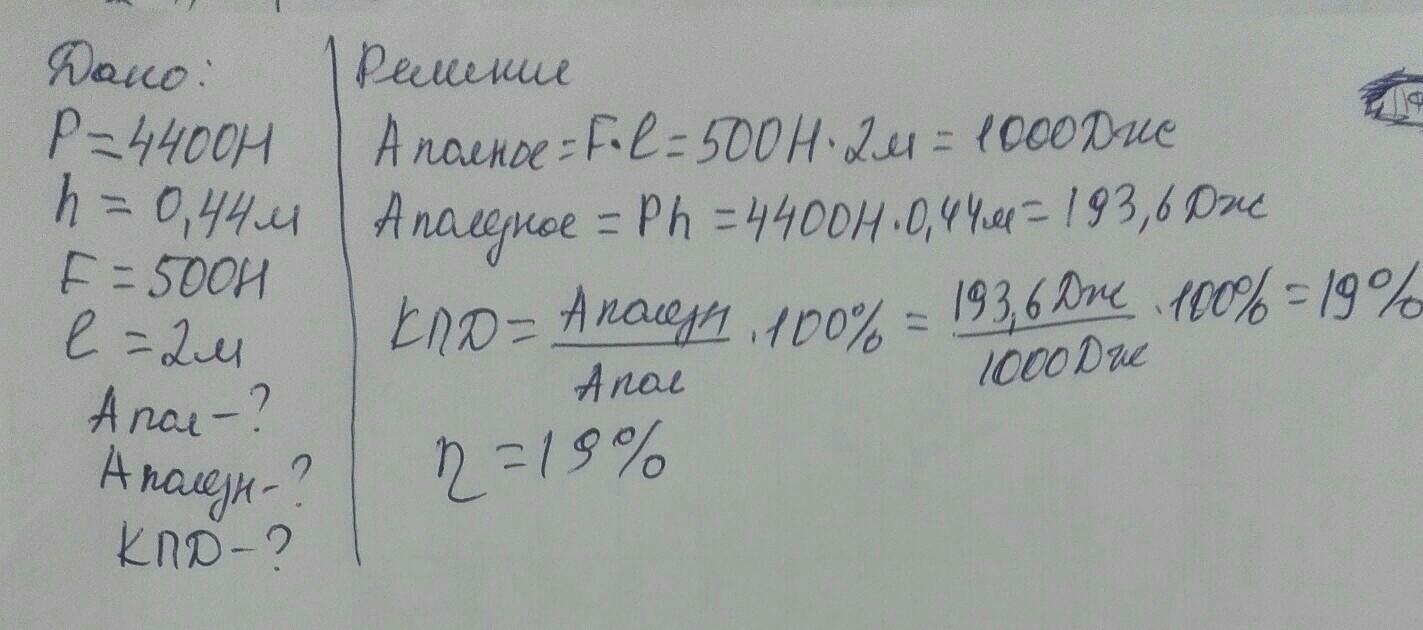 Дано:
P=4400Н
h = 0,44м
F = 500Н
l = 2м
A пол-?
A полезн-?
КПД-?
Решение
A полное = F·l = 500Н · 2м = 1000Дж
A полезное = Ph = 4400Н · 0,44м = 193,6 Дж
КПД = A полезн / A пол · 100% = 193,6 Дж / 1000Дж · 100% = 19%
η = 19%